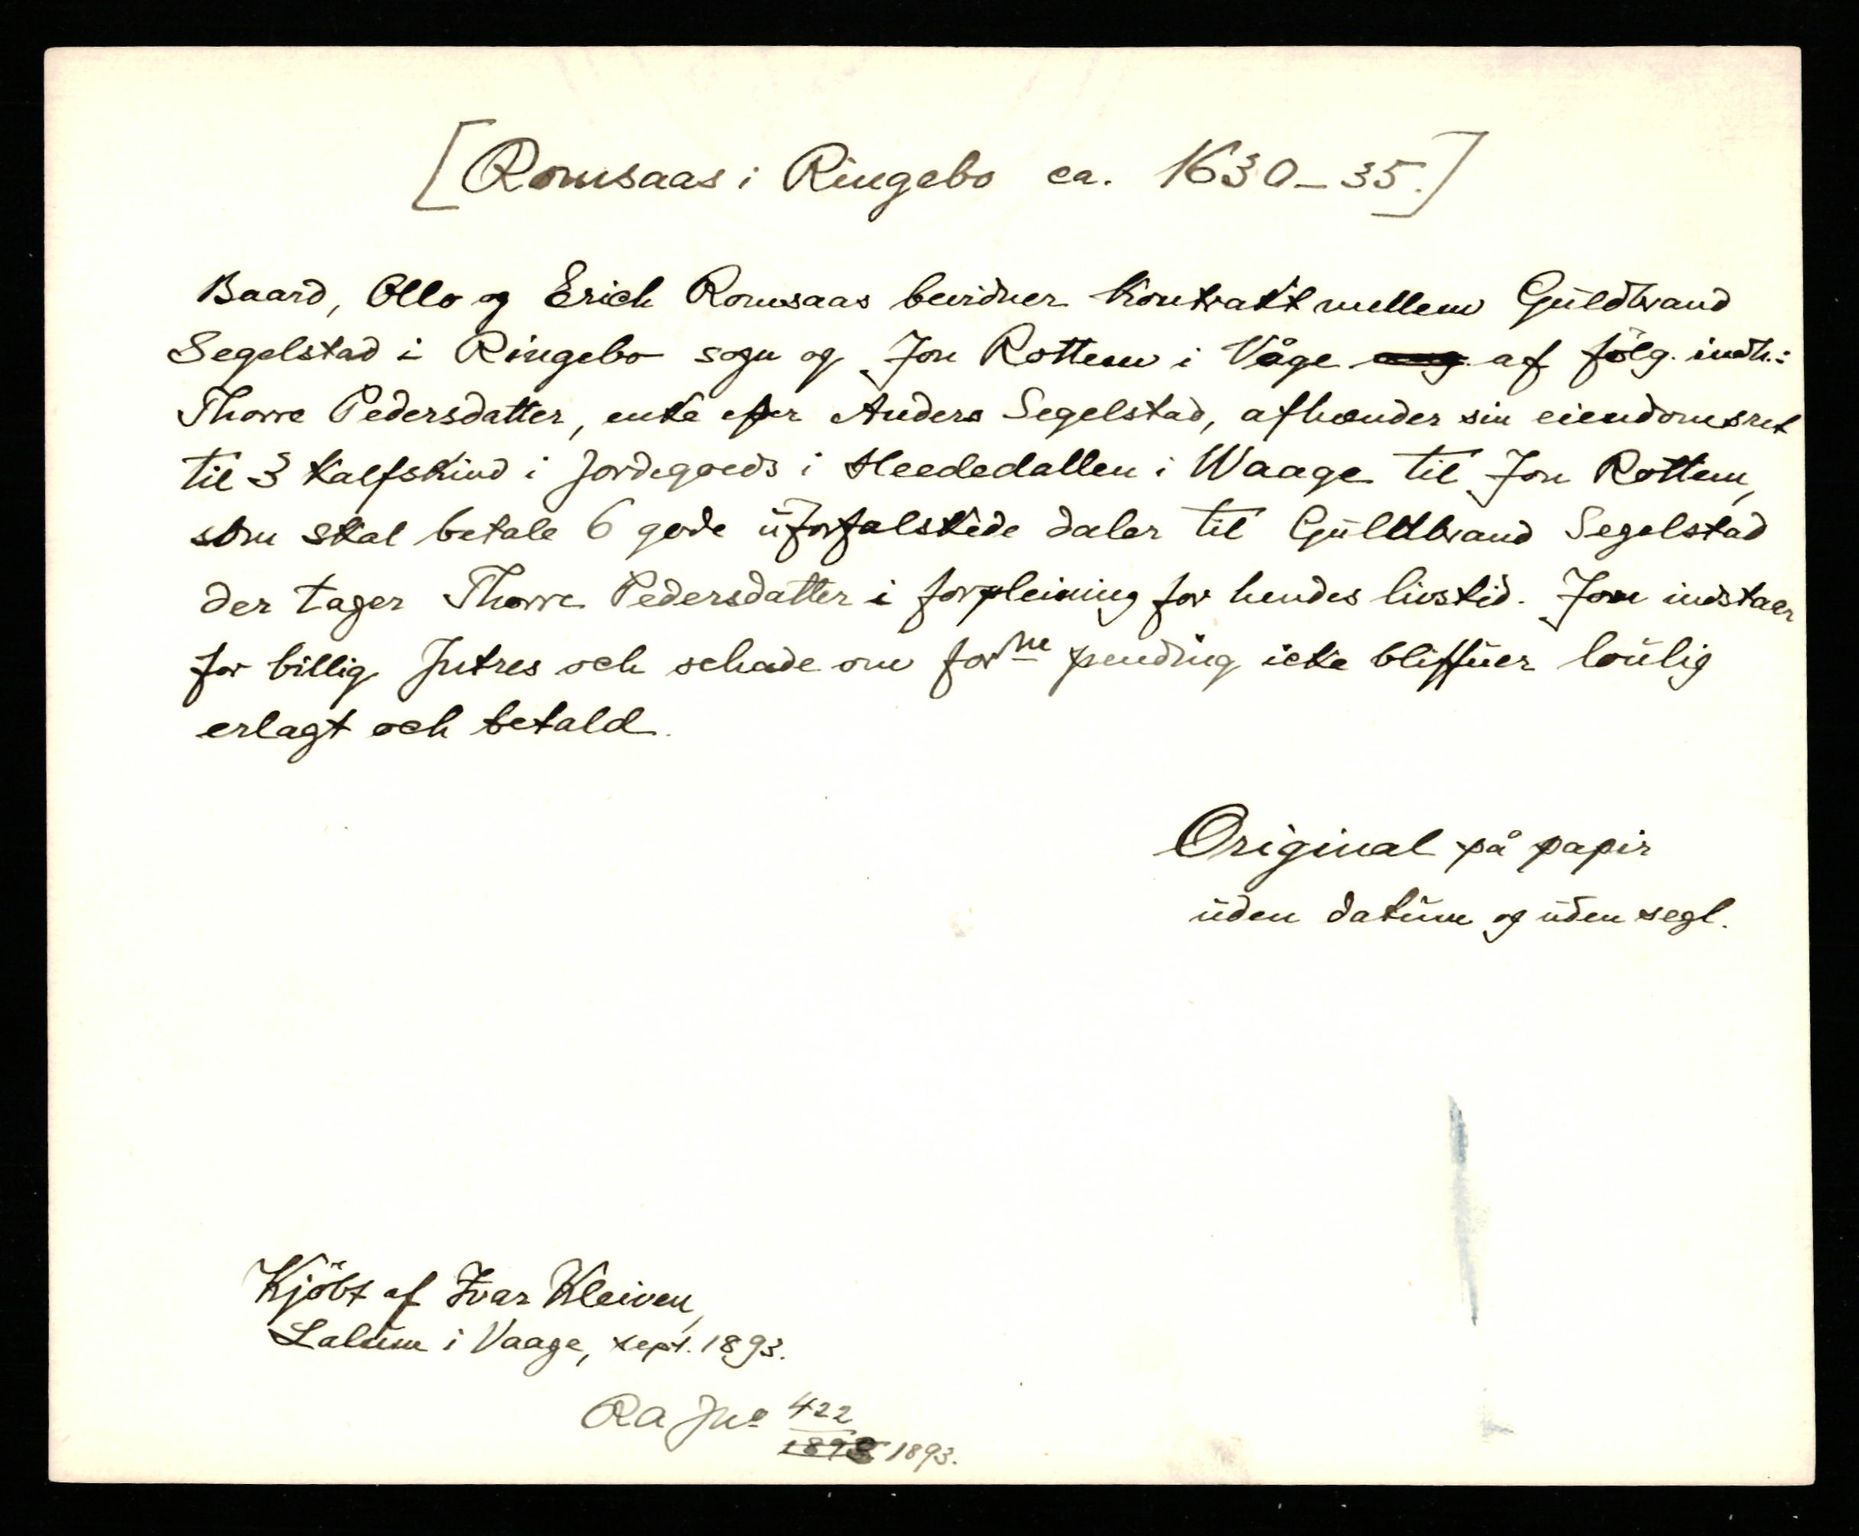 [Romsaas i Ringebo ca. 1630-35.]
Baard, Ollo og Erich Romsaas bevidner kontrakt mellem Guldbrand
Segelstad i Ringebo sogn og Jon Rottem i Våge af følg. indh.:
Thorre Pedersdatter, enke efter Anders Segelstad, afhænder sin eiendomsret
til 3 kalfskind i jordegoeds i Heededallen i Waage til Jon Rottem,
som skal betale 6 gode uforfalskede daler til Guldbrand Segelstad
der tager Thorre Pedersdatter i forpleining for hendes livstid. Jon indstaar
for billig Intres och schade om forne pending icke bliffuer loulig
erlagt och betald.
Original på papir
uden datum og uden segl.
Kjöbt af Ivar Kleiven,
Lalum i Vaage, sept. 1893.
RA Jno 422
1893.